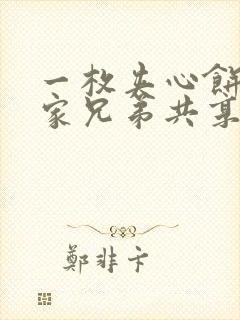 一枚夹心餅
家兄弟共某
鄭非卞